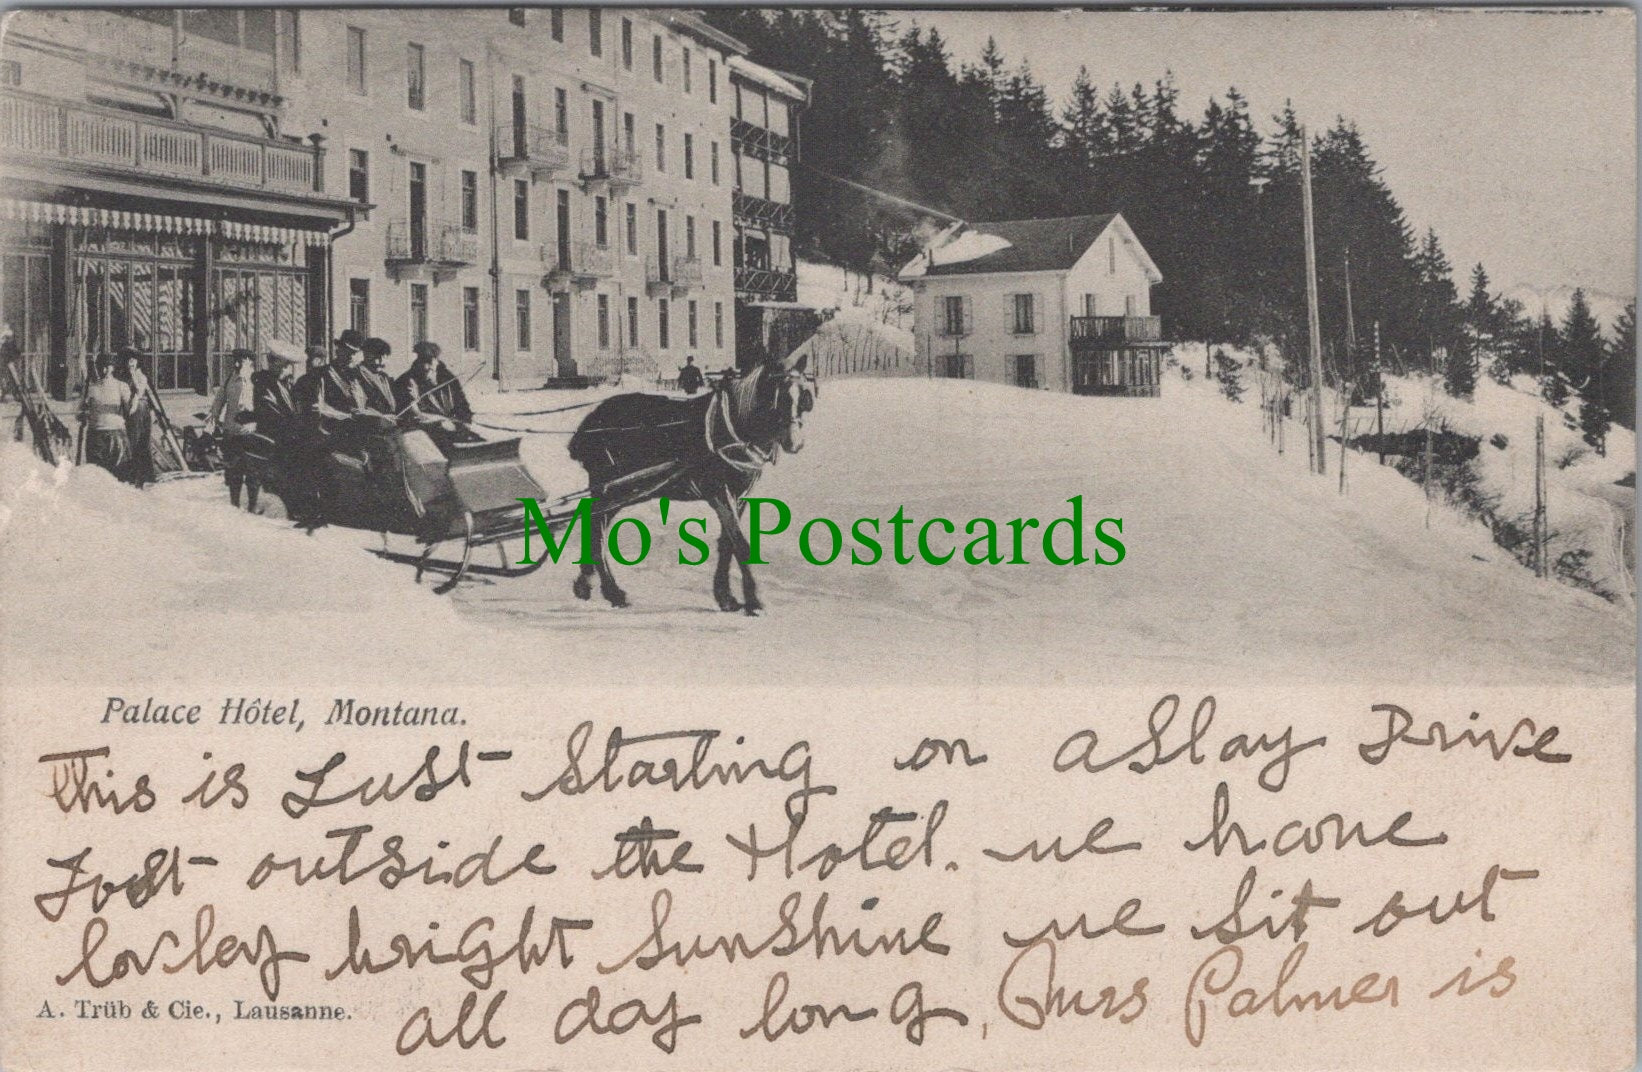 Mo's Postcards
Palace Hôtel, Montana.
This is Just Starting on a Slay Drive
Jost outside the Hotel. we have
lovley bright Sunshine we sit out
A. Trüb & Cie., Lausanne.
all day long, Mrs Palmer is